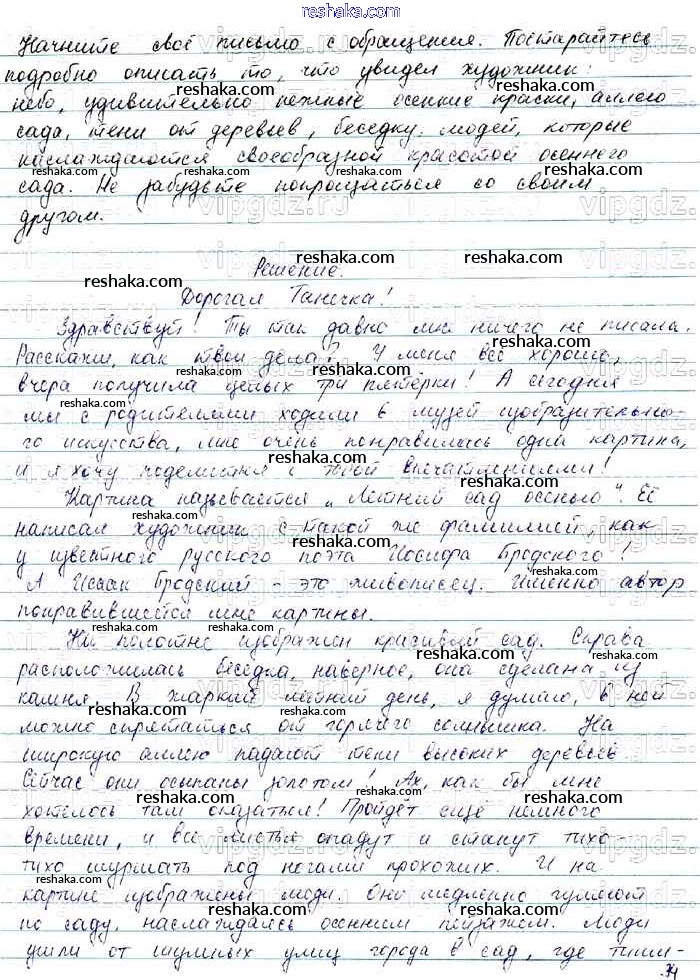 reshaka.com
Начните своё письмо с обращения. Постарайтесь
подробно описать то, что увидел художник:
небо, удивительно нежные осенние краски, аллею
сада, тени от деревьев, беседку, людей, которые
наслаждаются своеобразной красотой осеннего
сада. Не забудьте попрощаться со своим
другом.
Решение.
Дорогая Танечка!
Здравствуй! Ты так давно мне ничего не писала.
Расскажи, как твои дела? У меня всё хорошо,
вчера получила целых три пятёрки! А сегодня
мы с родителями ходили в музей изобразительно-
го искусства, мне очень понравилась одна картина,
и я хочу поделиться с тобой впечатлениями!
Картина называется „Летний сад осенью". Её
написал художник с такой же фамилией, как
у известного русского поэта Иосифа Бродского!
А Исаак Бродский - это живописец. Именно автор
понравившейся мне картины.
На полотне изображен красивый сад. Справа
расположилась беседка, наверное, она сделана из
камня. В жаркий летний день, я думаю, в ней
можно спрятаться от горячего солнышка. На
широкую аллею падают тени высоких деревьев.
Сейчас они осыпаны золотом! Ах, как бы мне
хотелось там оказаться! Пройдёт ещё немного
времени, и все листья опадут и станут тихо-
тихо шуршать под ногами прохожих. И на
картине изображены люди. Они медленно гуляют
по саду, наслаждаясь осенним пейзажем. Люди
ушли от шумных улиц города в сад, где тиши-
34